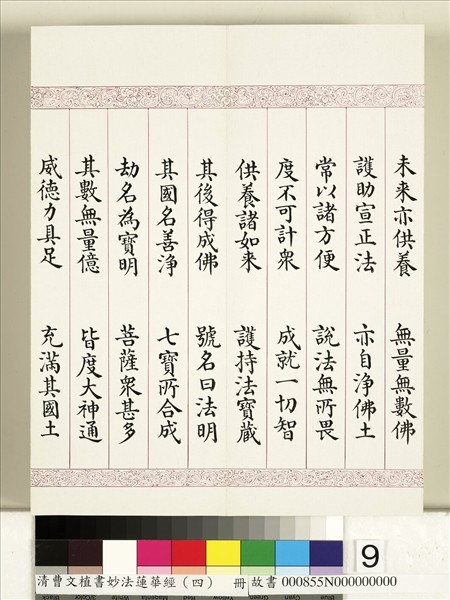 未来亦供養　無量無數佛
護助宣正法　亦自淨佛土
常以諸方便　說法無所畏
度不可計衆　成就一切智
供養諸如来　護持法寶蔵
其後得成佛　號名曰法明
其國名善淨　七寶所合成
劫名為寶明　菩薩衆甚多
其數無量億　皆度大神通
威德力具足　充滿其國土
9
清曹文植書妙法蓮華經（四）　冊 故書 000855N000000000